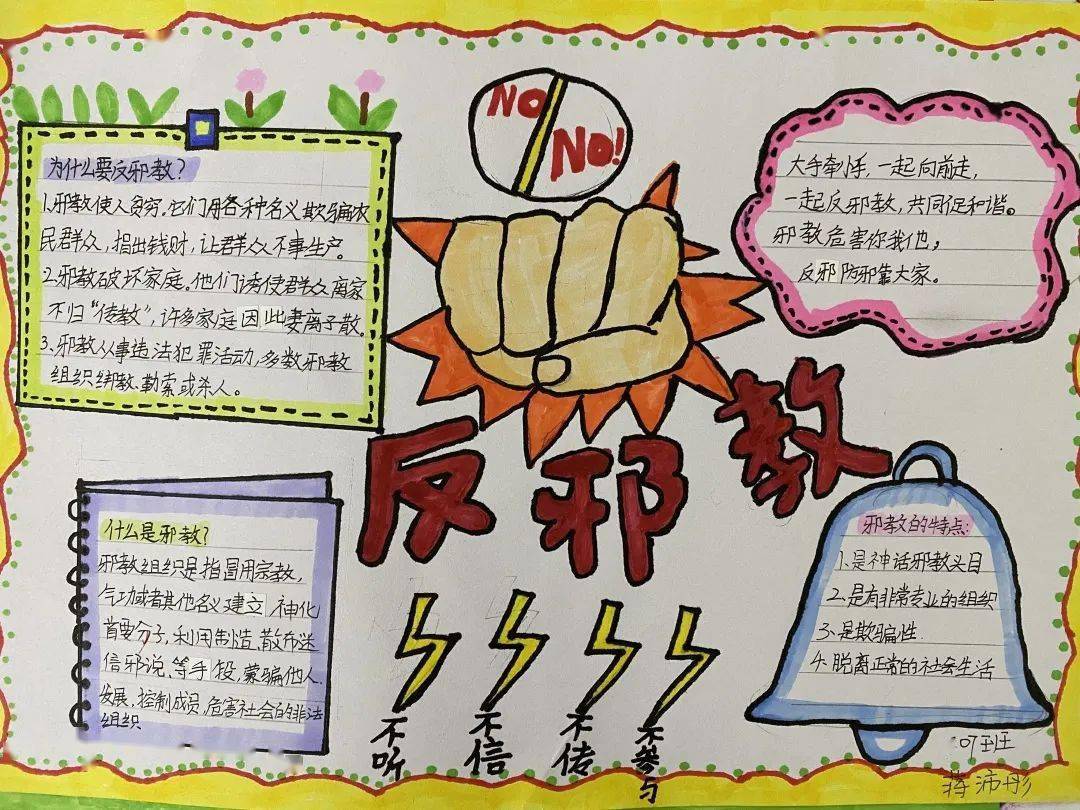 NO
NO!
为什么要反邪教?
1.邪教使人贫穷.它们用各种名义欺骗农
民群众,捐出钱财,让群众不事生产。
2.邪教破坏家庭.他们诱使群众离家
不归“传教”,许多家庭因此妻离子散.
3.邪教从事违法犯罪活动,多数邪教
组织绑教.勒索或杀人。
大手牵小手,一起向前走,
一起反邪教,共同促和谐。
邪教危害你我他,
反邪防邪靠大家。
反邪教
什么是邪教?
邪教组织是指冒用宗教,
气功或者其他名义建立,神化
首要分子,利用制造、散布迷
信邪说、等手段,蒙骗他人.
发展、控制成员,危害社会的非法
组织
邪教的特点:
1.是神话邪教头目
2.是有非常专业的组织
3.是欺骗性
4.脱离正常的社会生活
不听
不信
不传
不参与
蒋沛彤